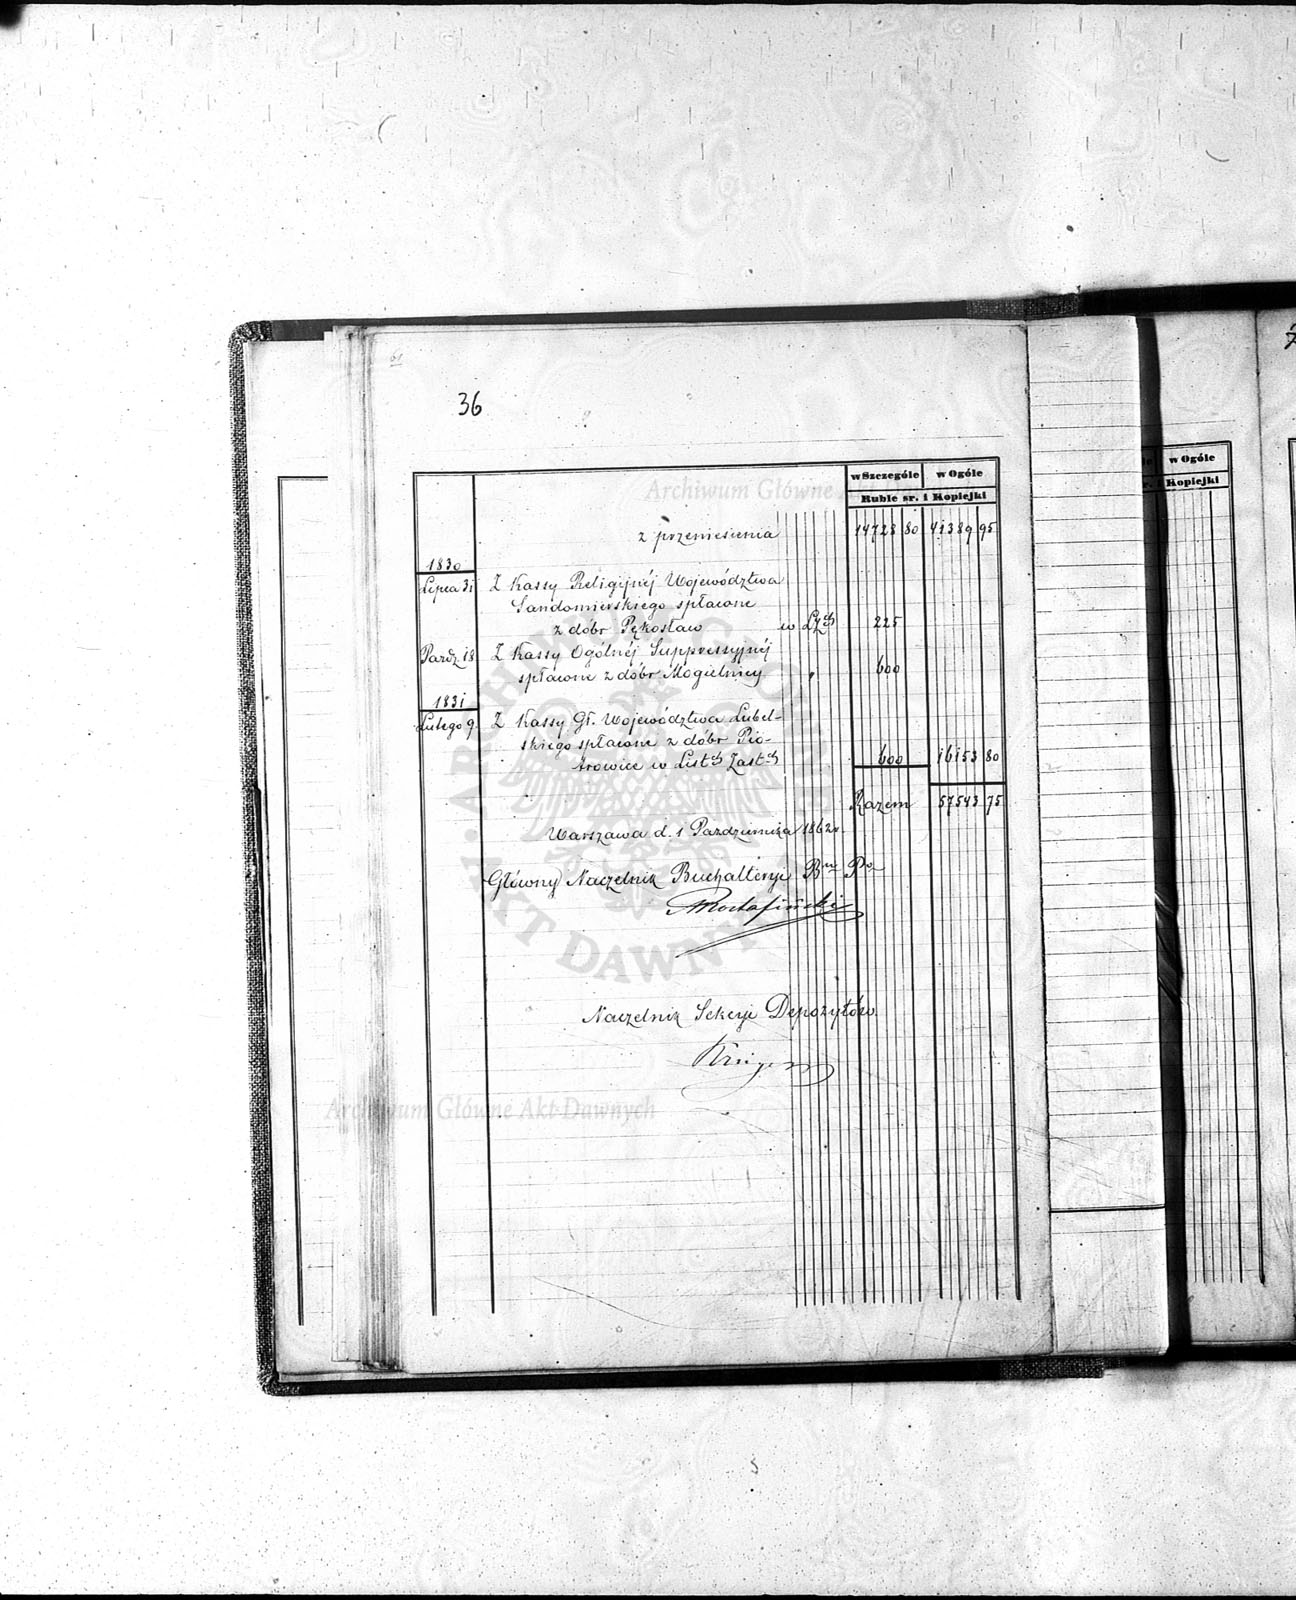 61
36
w Szczególe w Ogóle
Ruble sr. i Kopiejki
z przeniesienia 14728 80 41389 95
1830
Lipca 31 Z Kassy Religijnéj Województwa
Sandomierskiego spłacone
z dóbr Pękosław w LZch 225
Paźdz. 18 Z Kassy Ogólnéj Suppressyjnéj
spłacone z dóbr Mogielnicy " 600
1831
Lutego 9 Z Kassy Gł. Województwa Lubel-
skiego spłacone z dóbr Pio-
trowice w List:ch Zast:ch 600 16153 80
Razem 57543 75
Warszawa d. 1 Października 1862 r.
Główny Naczelnik Buchalteryi
Naczelnik Sekcyi Depozytów
w Ogóle
Kopiejki
Archiwum Główne Akt Dawnych